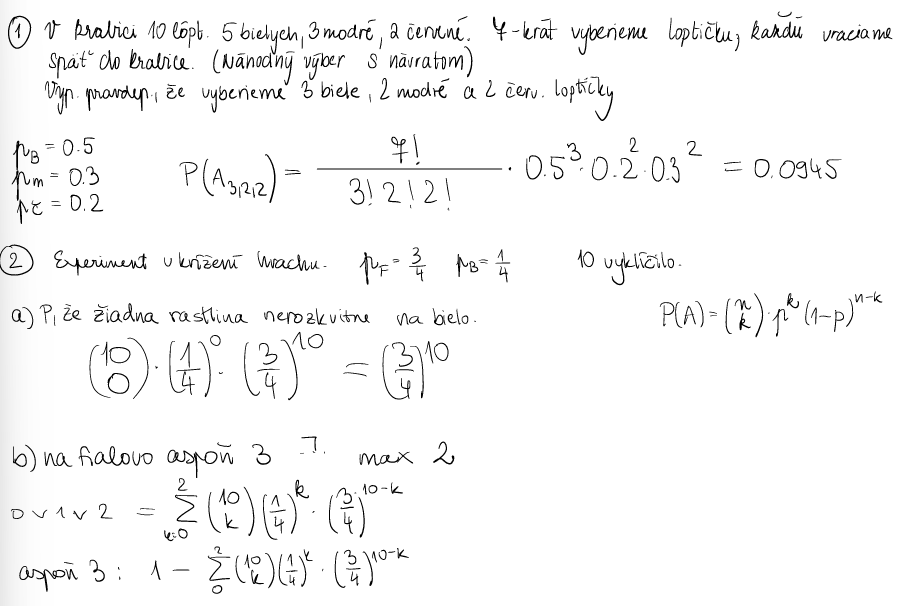 ① V krabici 10 lôpt. 5 bielych, 3 modré, 2 červené. 7-krát vyberieme loptičku, každú vraciame
späť do krabice. (Náhodný výber s návratom)
Vyp. pravdep., že vyberieme 3 biele, 2 modré a 2 červ. loptičky
p_B = 0.5
p_m = 0.3
p_č = 0.2
P(A_{3,2,2}) = \frac{7!}{3! 2! 2!} · 0.5^3 · 0.2^2 · 0.3^2 = 0.0945
② Experiment v krížení hrachu. p_F = \frac{3}{4} p_B = \frac{1}{4} 10 vyklíčilo.
a) P, že žiadna rastlina nerozkvitne na bielo.
P(A) = \binom{n}{k} · p^k (1-p)^{n-k}
\binom{10}{0} · (\frac{1}{4})^0 · (\frac{3}{4})^{10} = (\frac{3}{4})^{10}
b) na fialovo aspoň 3 max 2
0 ∨ 1 ∨ 2 = \sum_{k=0}^{2} \binom{10}{k} (\frac{1}{4})^k · (\frac{3}{4})^{10-k}
aspoň 3 : 1 - \sum_{0}^{2} \binom{10}{k} (\frac{1}{4})^k · (\frac{3}{4})^{10-k}